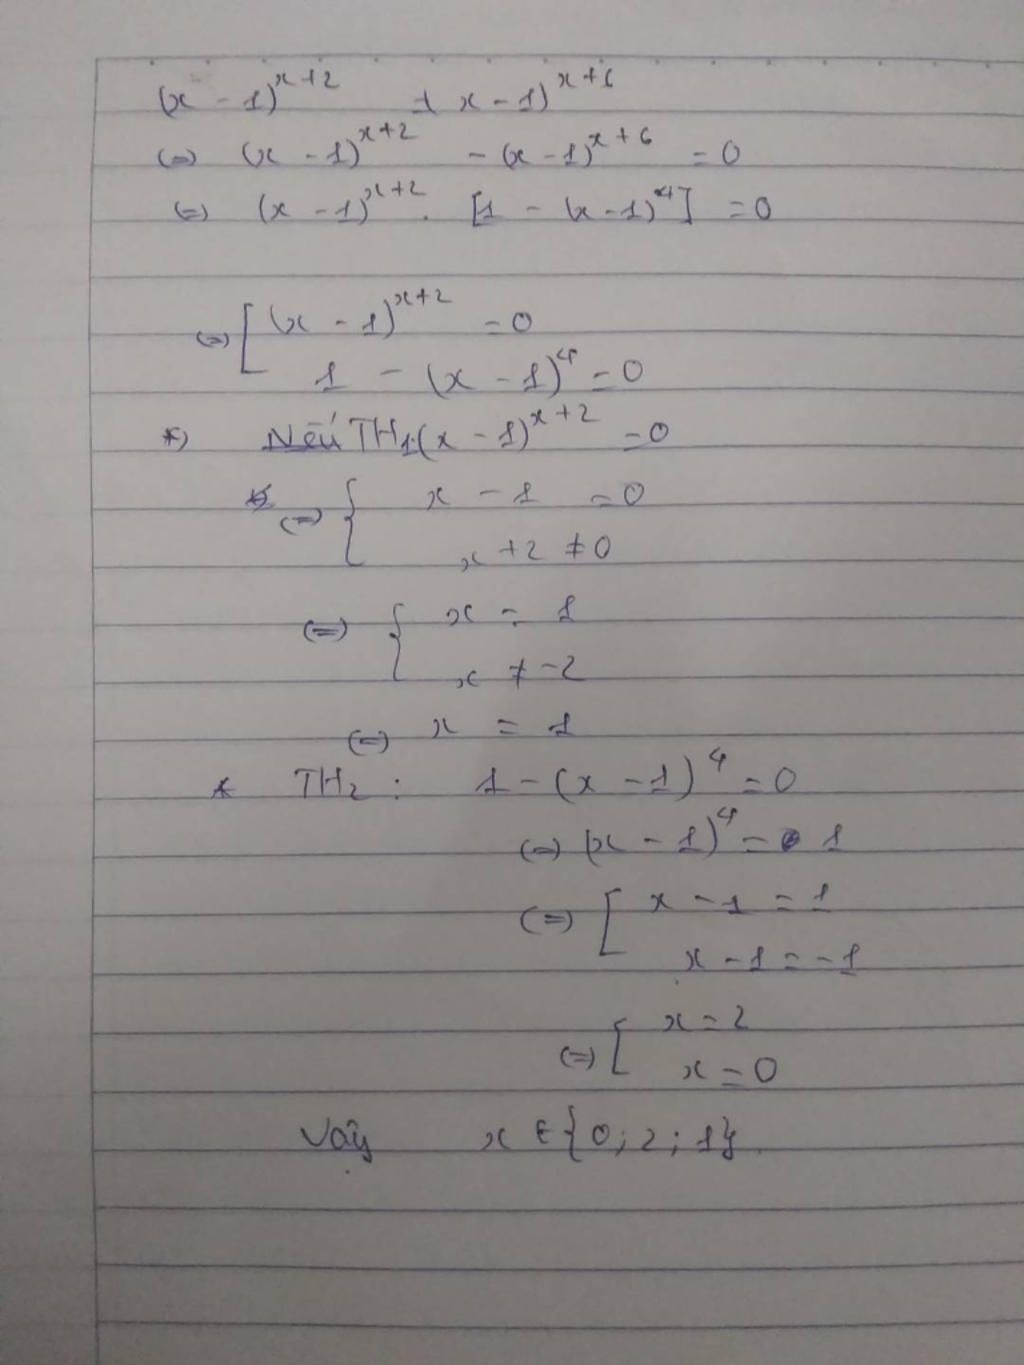 (x - 1)^{x+2} + x - 1)^{x+6}
(=) (x - 1)^{x+2} - (x - 1)^{x+6} = 0
(=) (x - 1)^{x+2} . [1 - (x - 1)^4] = 0
(=) [ (x - 1)^{x+2} = 0
1 - (x - 1)^4 = 0
*) Nếu TH1: (x - 1)^{x+2} = 0
(=) { x - 1 = 0
x + 2 ≠ 0
(=) { x = 1
x ≠ -2
(=) x = 1
* TH2 : 1 - (x - 1)^4 = 0
(=) (x - 1)^4 = 1
(=) [ x - 1 = 1
x - 1 = -1
(=) [ x = 2
x = 0
Vậy x ∈ {0; 2; 1}.